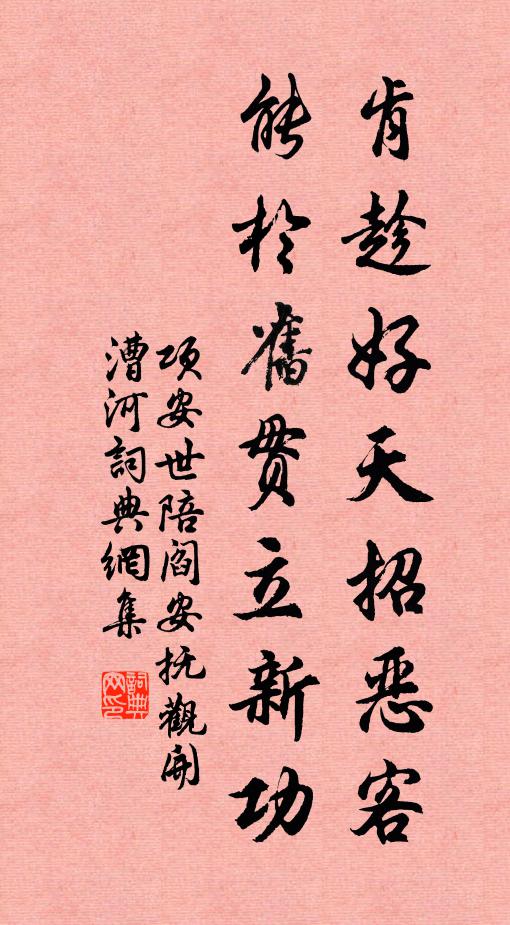 肯趁好天招恶客
能於舊贯立新功
项安世陪阎安抚觀開
漕河詞典網集
詞典网印